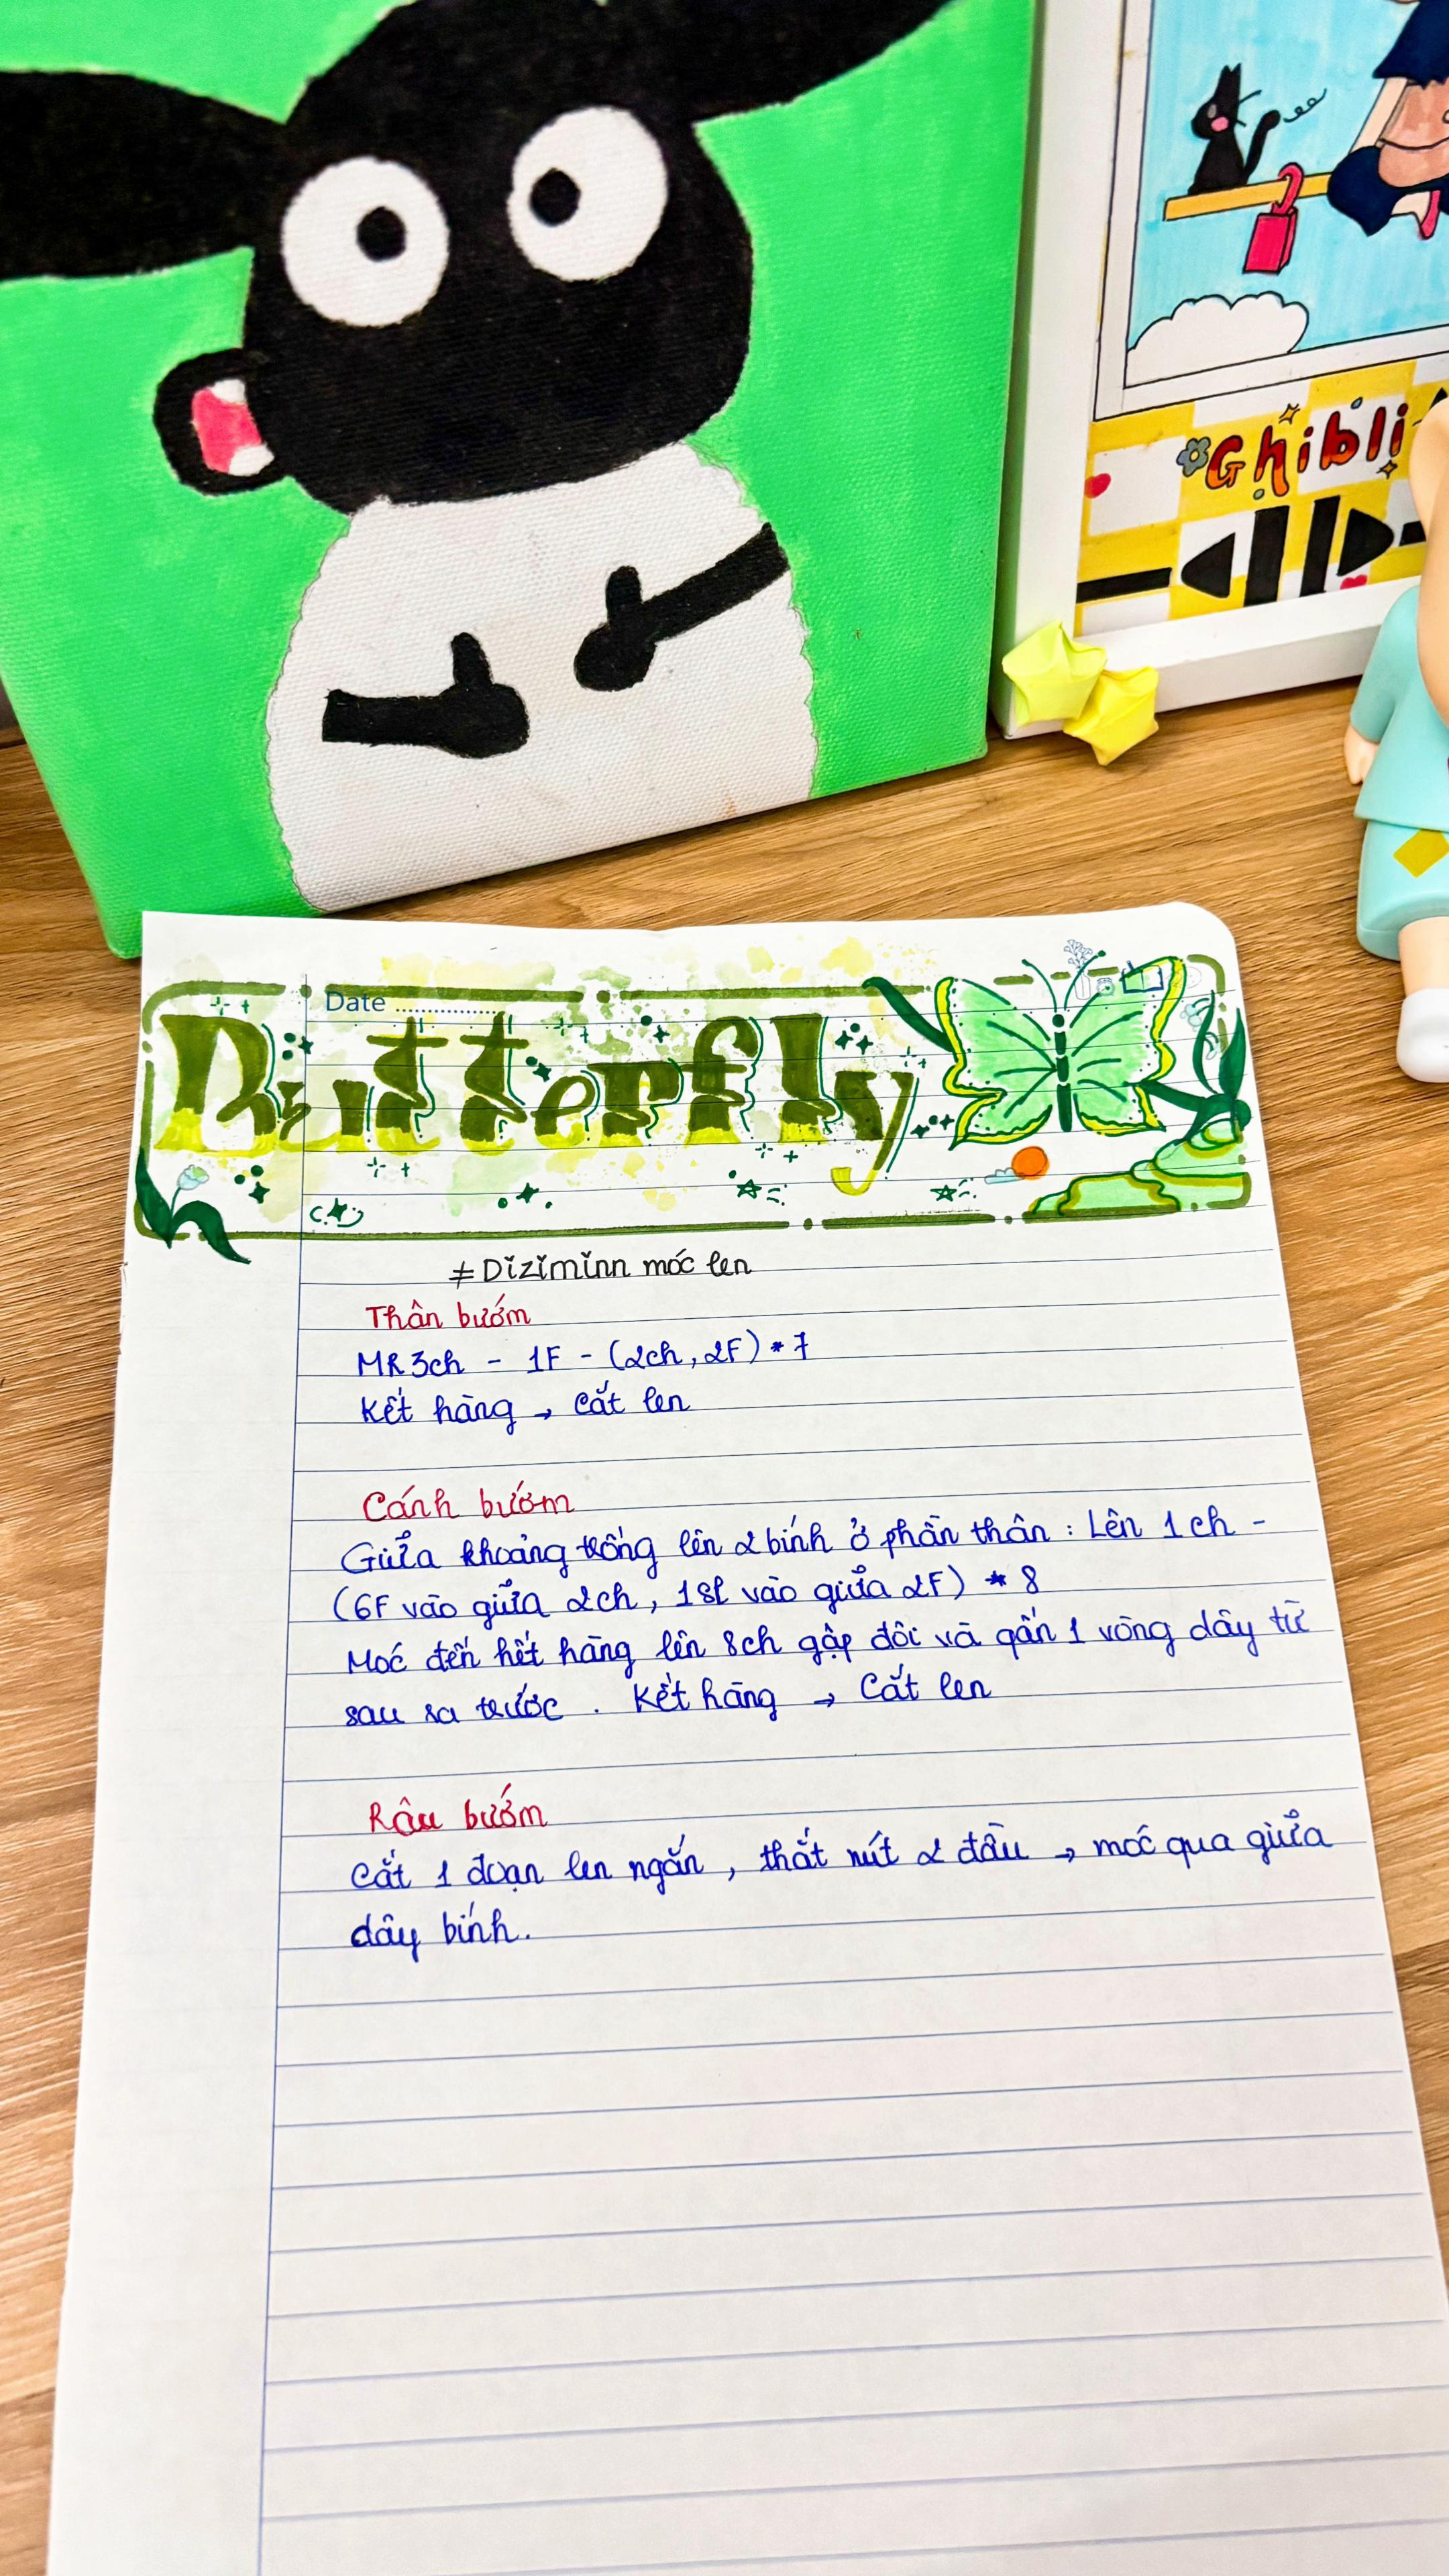 Ghibli
Date ..................
Butterfly
#Diziminn móc len
Thân bướm
MR 3ch - 1F - (2ch, 2F) * 7
Kết hàng → cắt len
Cánh bướm
Giữa khoảng trống lên 2 bính ở phần thân : Lên 1 ch -
(6F vào giữa 2ch, 1sl vào giữa 2F) * 8
Móc đến hết hàng lên 8ch gập đôi và gắn 1 vòng dây từ
sau ra trước . Kết hàng → Cắt len
Râu bướm
Cắt 1 đoạn len ngắn , thắt nút 2 đầu → móc qua giữa
dây bính.